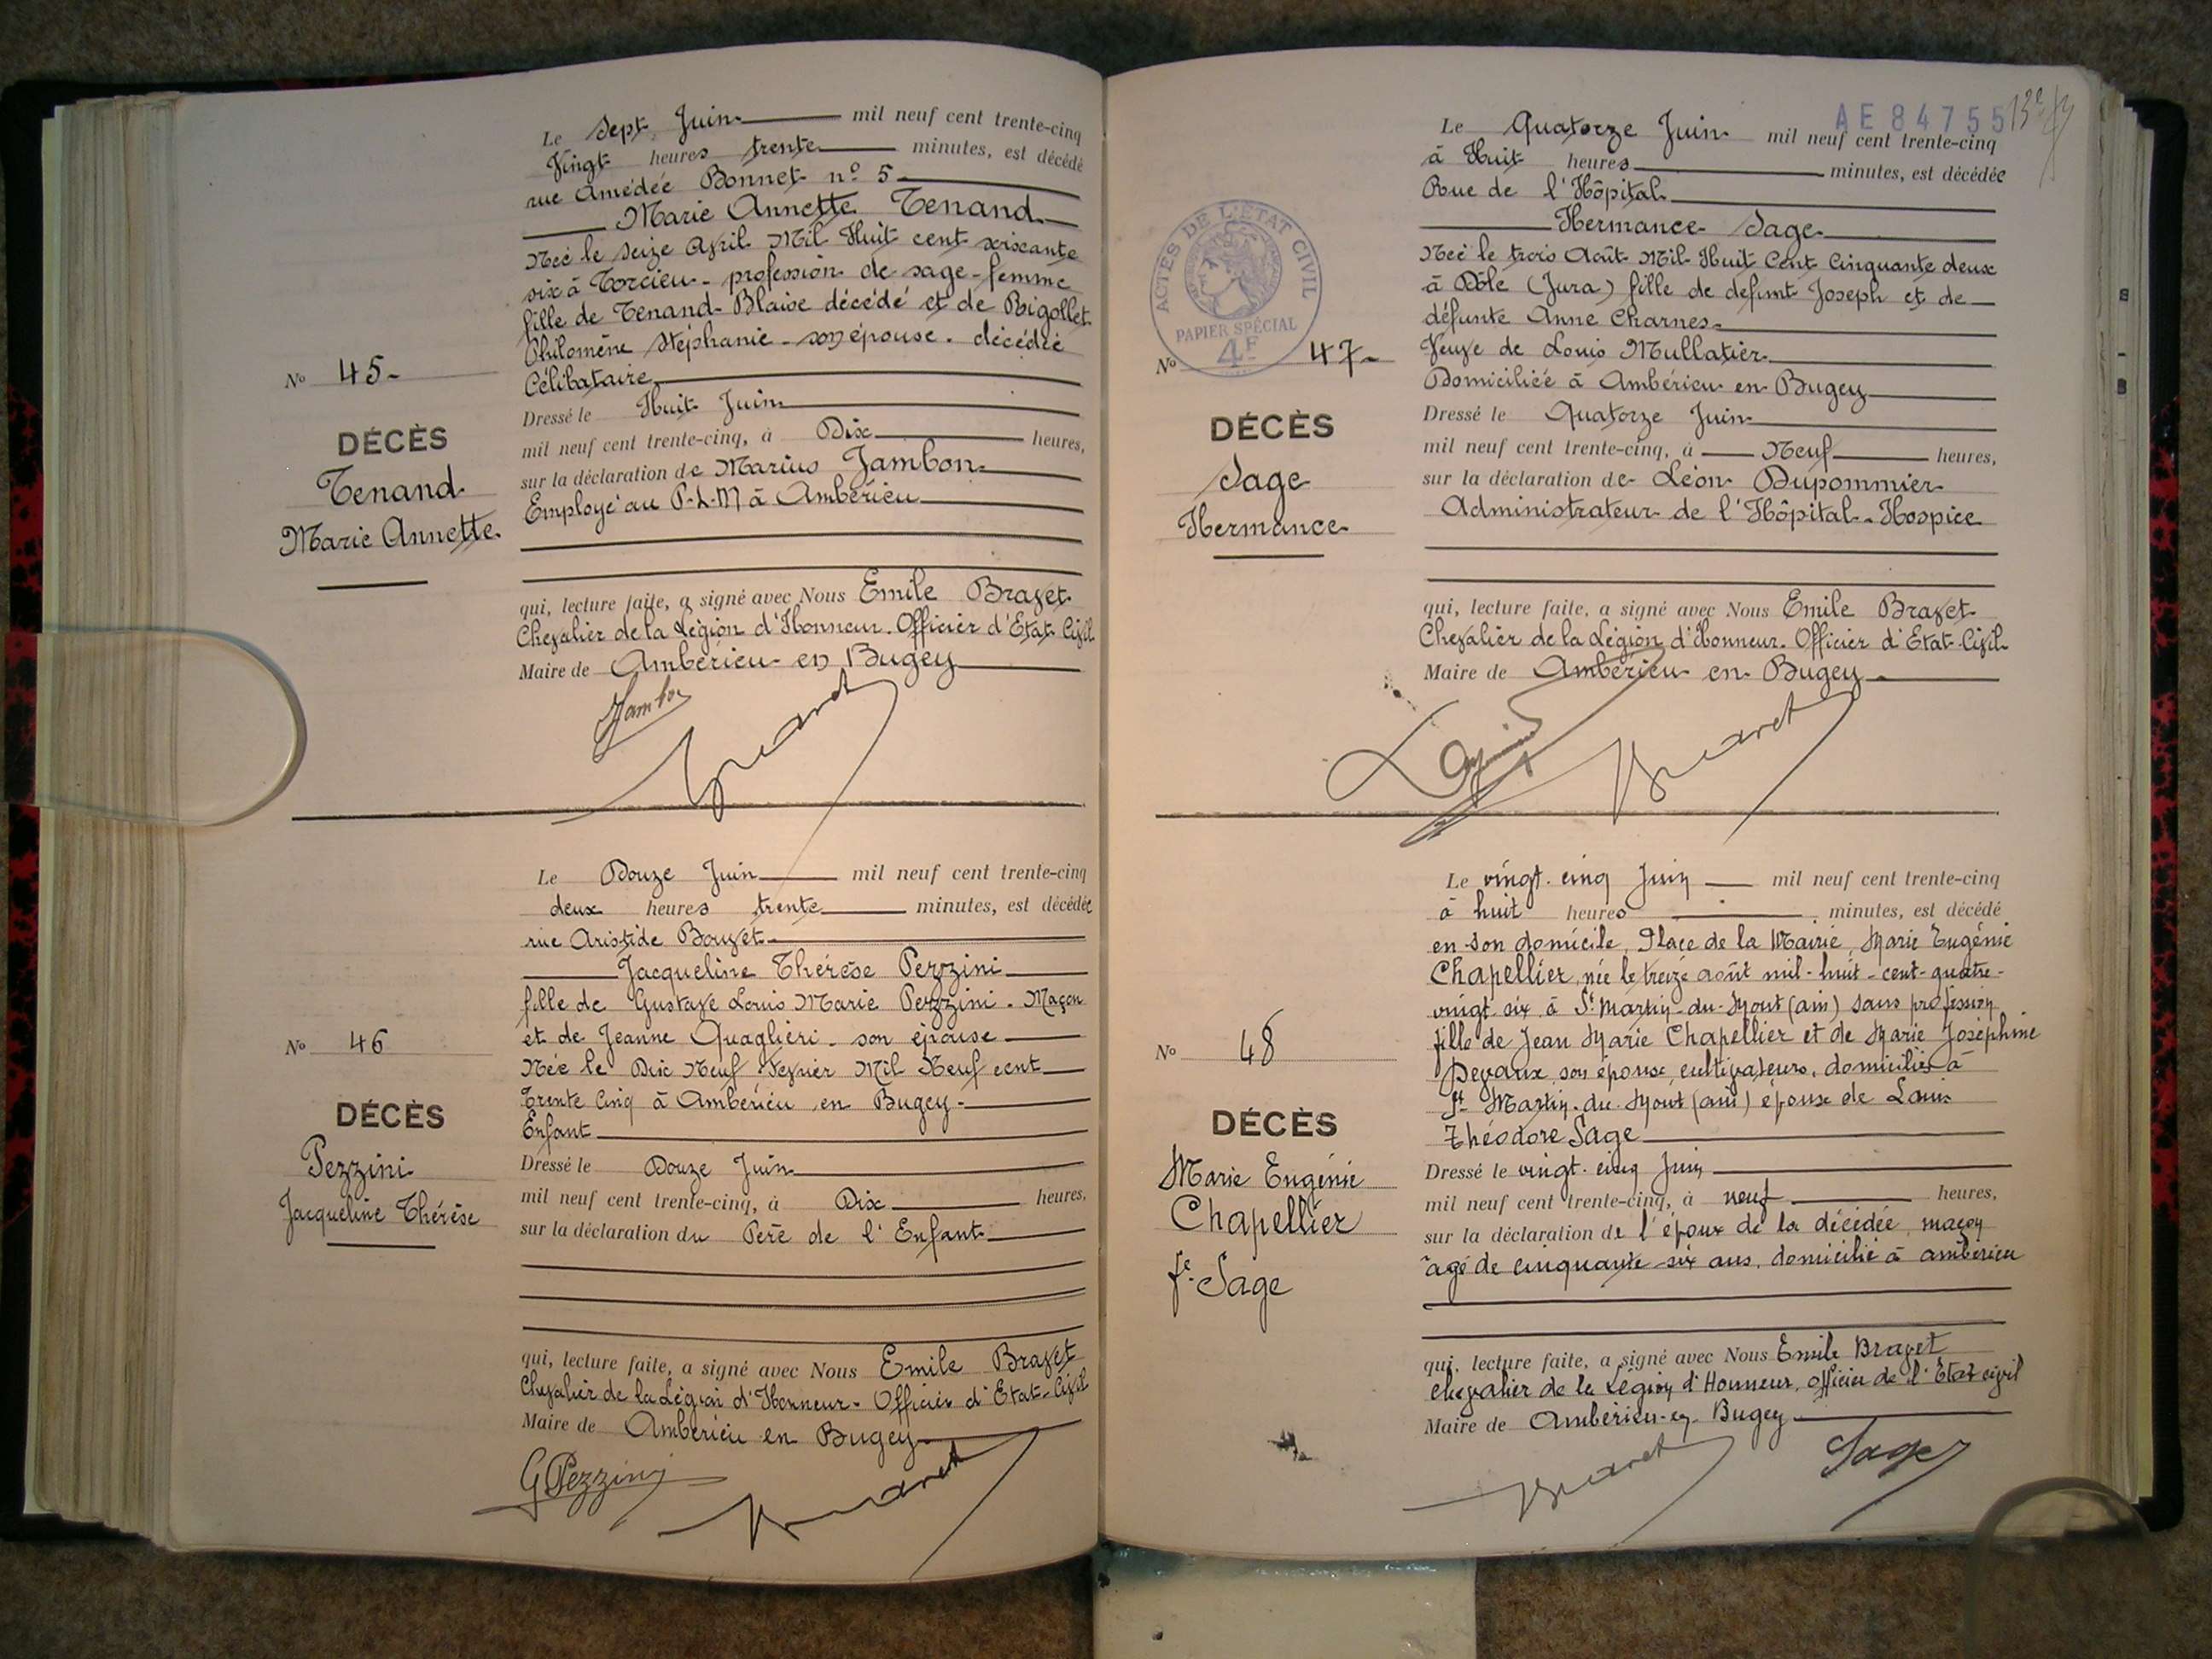 Le Sept Juin mil neuf cent trente-cinq
Vingt heures trente minutes, est décédé
rue Amédée Bonnet nº 5
Marie Annette Tenand
Née le Seize Avril Mil Huit cent soixante
six à Torcieu - profession de sage-femme
fille de Tenand Blaise décédé et de Rigollet
Philomène Stéphanie - son épouse. décédée
Célibataire
Nº 45
DÉCÈS
Tenand
Marie Annette
Dressé le Huit Juin
mil neuf cent trente-cinq, à Dix heures,
sur la déclaration de Marius Jambon
Employé au P-L-M à Ambérieu
qui, lecture faite, a signé avec Nous Emile Bravet
Chevalier de la Légion d'Honneur. Officier d'Etat Civil
Maire de Ambérieu en Bugey
Jambon
Bravet
Le Douze Juin mil neuf cent trente-cinq
deux heures trente minutes, est décédée
rue Aristide Bouvet
Jacqueline Thérèse Pezzini
fille de Gustave Louis Marie Pezzini. Maçon
et de Jeanne Quaglieri. son épouse
Née le Dix Neuf Fevrier Mil Neuf cent
Trente Cinq à Ambérieu en Bugey
Enfant
Nº 46
DÉCÈS
Pezzini
Jacqueline Thérèse
Dressé le Douze Juin
mil neuf cent trente-cinq, à Dix heures,
sur la déclaration du Père de l'Enfant
qui, lecture faite, a signé avec Nous Emile Bravet
Chevalier de la Légion d'Honneur. Officier d'Etat-Civil
Maire de Ambérieu en Bugey
G Pezzini
Bravet
AE 84755
Le Quatorze Juin mil neuf cent trente-cinq
à Huit heures minutes, est décédée
Rue de l'Hôpital
Hermance Sage
Née le trois Août Mil Huit Cent Cinquante deux
à Dôle (Jura) fille de defunt Joseph et de
défunte Anne Charnes
Veuve de Louis Mullatier
Domiciliée à Ambérieu en Bugey
ACTES DE L'ÉTAT CIVIL
PAPIER SPÉCIAL
4F
Nº 47
DÉCÈS
Sage
Hermance
Dressé le Quatorze Juin
mil neuf cent trente-cinq, à Neuf heures,
sur la déclaration de Léon Dupommier
Administrateur de l'Hôpital-Hospice
qui, lecture faite, a signé avec Nous Emile Bravet
Chevalier de la Légion d'Honneur. Officier d'Etat-Civil
Maire de Ambérieu en Bugey
Bravet
Le vingt-cinq Juin mil neuf cent trente-cinq
à huit heures minutes, est décédé
en son domicile, Place de la Mairie, Marie Eugénie
Chapellier, née le treize août mil-huit-cent-quatre-
vingt six à St Martin-du-Mont (ain) sans profession
fille de Jean Marie Chapellier et de Marie Joséphine
Devaux, son épouse, cultivateurs, domiciliés à
St Martin-du-Mont (ain) épouse de Louis
Théodore Sage
Nº 48
DÉCÈS
Marie Eugénie
Chapellier
fe Sage
Dressé le vingt-cinq Juin
mil neuf cent trente-cinq, à neuf heures,
sur la déclaration de l'époux de la décédée, maçon
âgé de cinquante-six ans, domicilié à ambérieu
qui, lecture faite, a signé avec Nous Emile Bravet
chevalier de la Légion d'Honneur, officier de l'Etat civil
Maire de Ambérieu-en-Bugey
Bravet
Sage